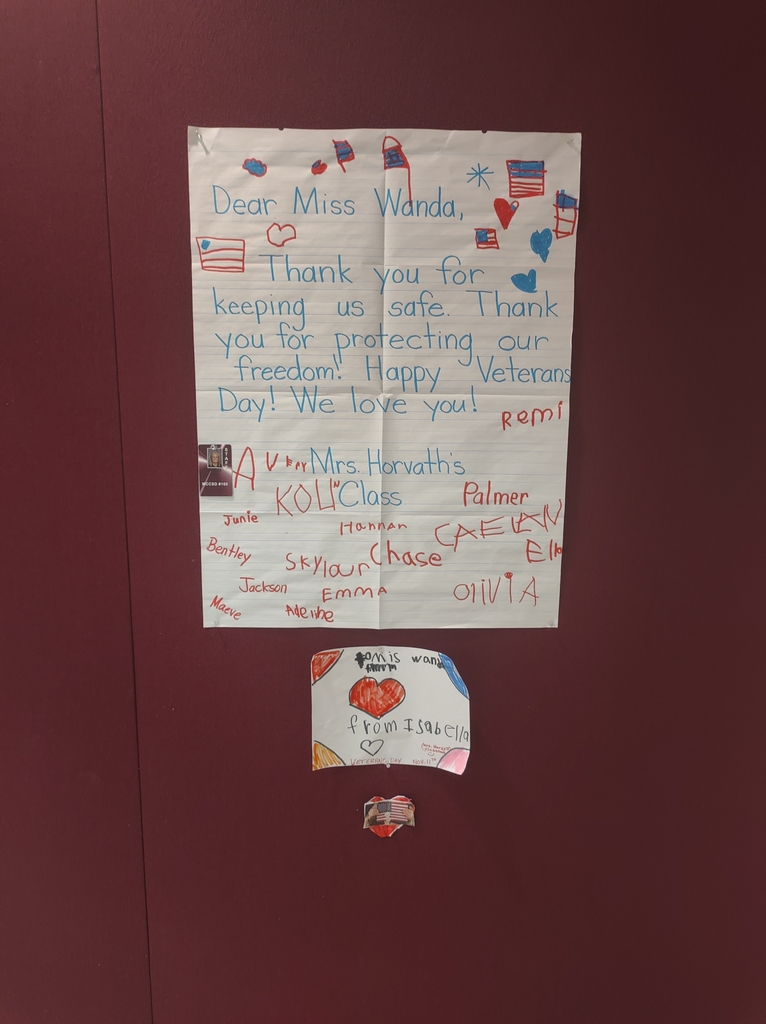 Dear Miss Wanda,
Thank you for
keeping us safe. Thank
you for protecting our
freedom! Happy Veterans
Day! We love you!
Remi
Mrs. Horvath's
Class
Palmer
Junie
Hannah
CAELAN
Bentley
Skylour
Chase
Ella
Jackson
EMMA
OliViA
Maeve
Adeline
from Isabella
Veterans Day Nov. 11th